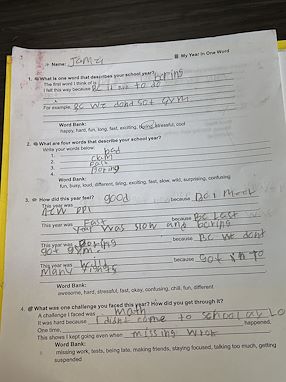 My Year in One Word
Name: James
1. What is one word that describes your school year?
The first word I think of is boring
I felt this way because BC it not to do
For example, BC We dond got gym
Word Bank:
happy, hard, fun, long, fast, exciting, boring, stressful, cool
2. What are four words that describe your school year?
Write your words below:
1. bad
2. calm
3. Fast
4. Boring
fun, busy, loud, different, tiring, exciting, fast, slow, wild, surprising, confusing
3. How did this year feel?
This year was good because I
new
This year was Fast because BC last
year was slow and boring
This year was boring because BC we dont
got gym
This year was because Got in to
many fights
Word Bank:
awesome, hard, stressful, fast, okay, confusing, chill, fun, different
4. What was one challenge you faced this year? How did you get through it?
A challenge I faced was math
It was hard because I didnt come to school
One time, happened.
This shows I kept going even when missing wrok
Word Bank:
missing work, tests, being late, making friends, staying focused, talking too much, getting
suspended